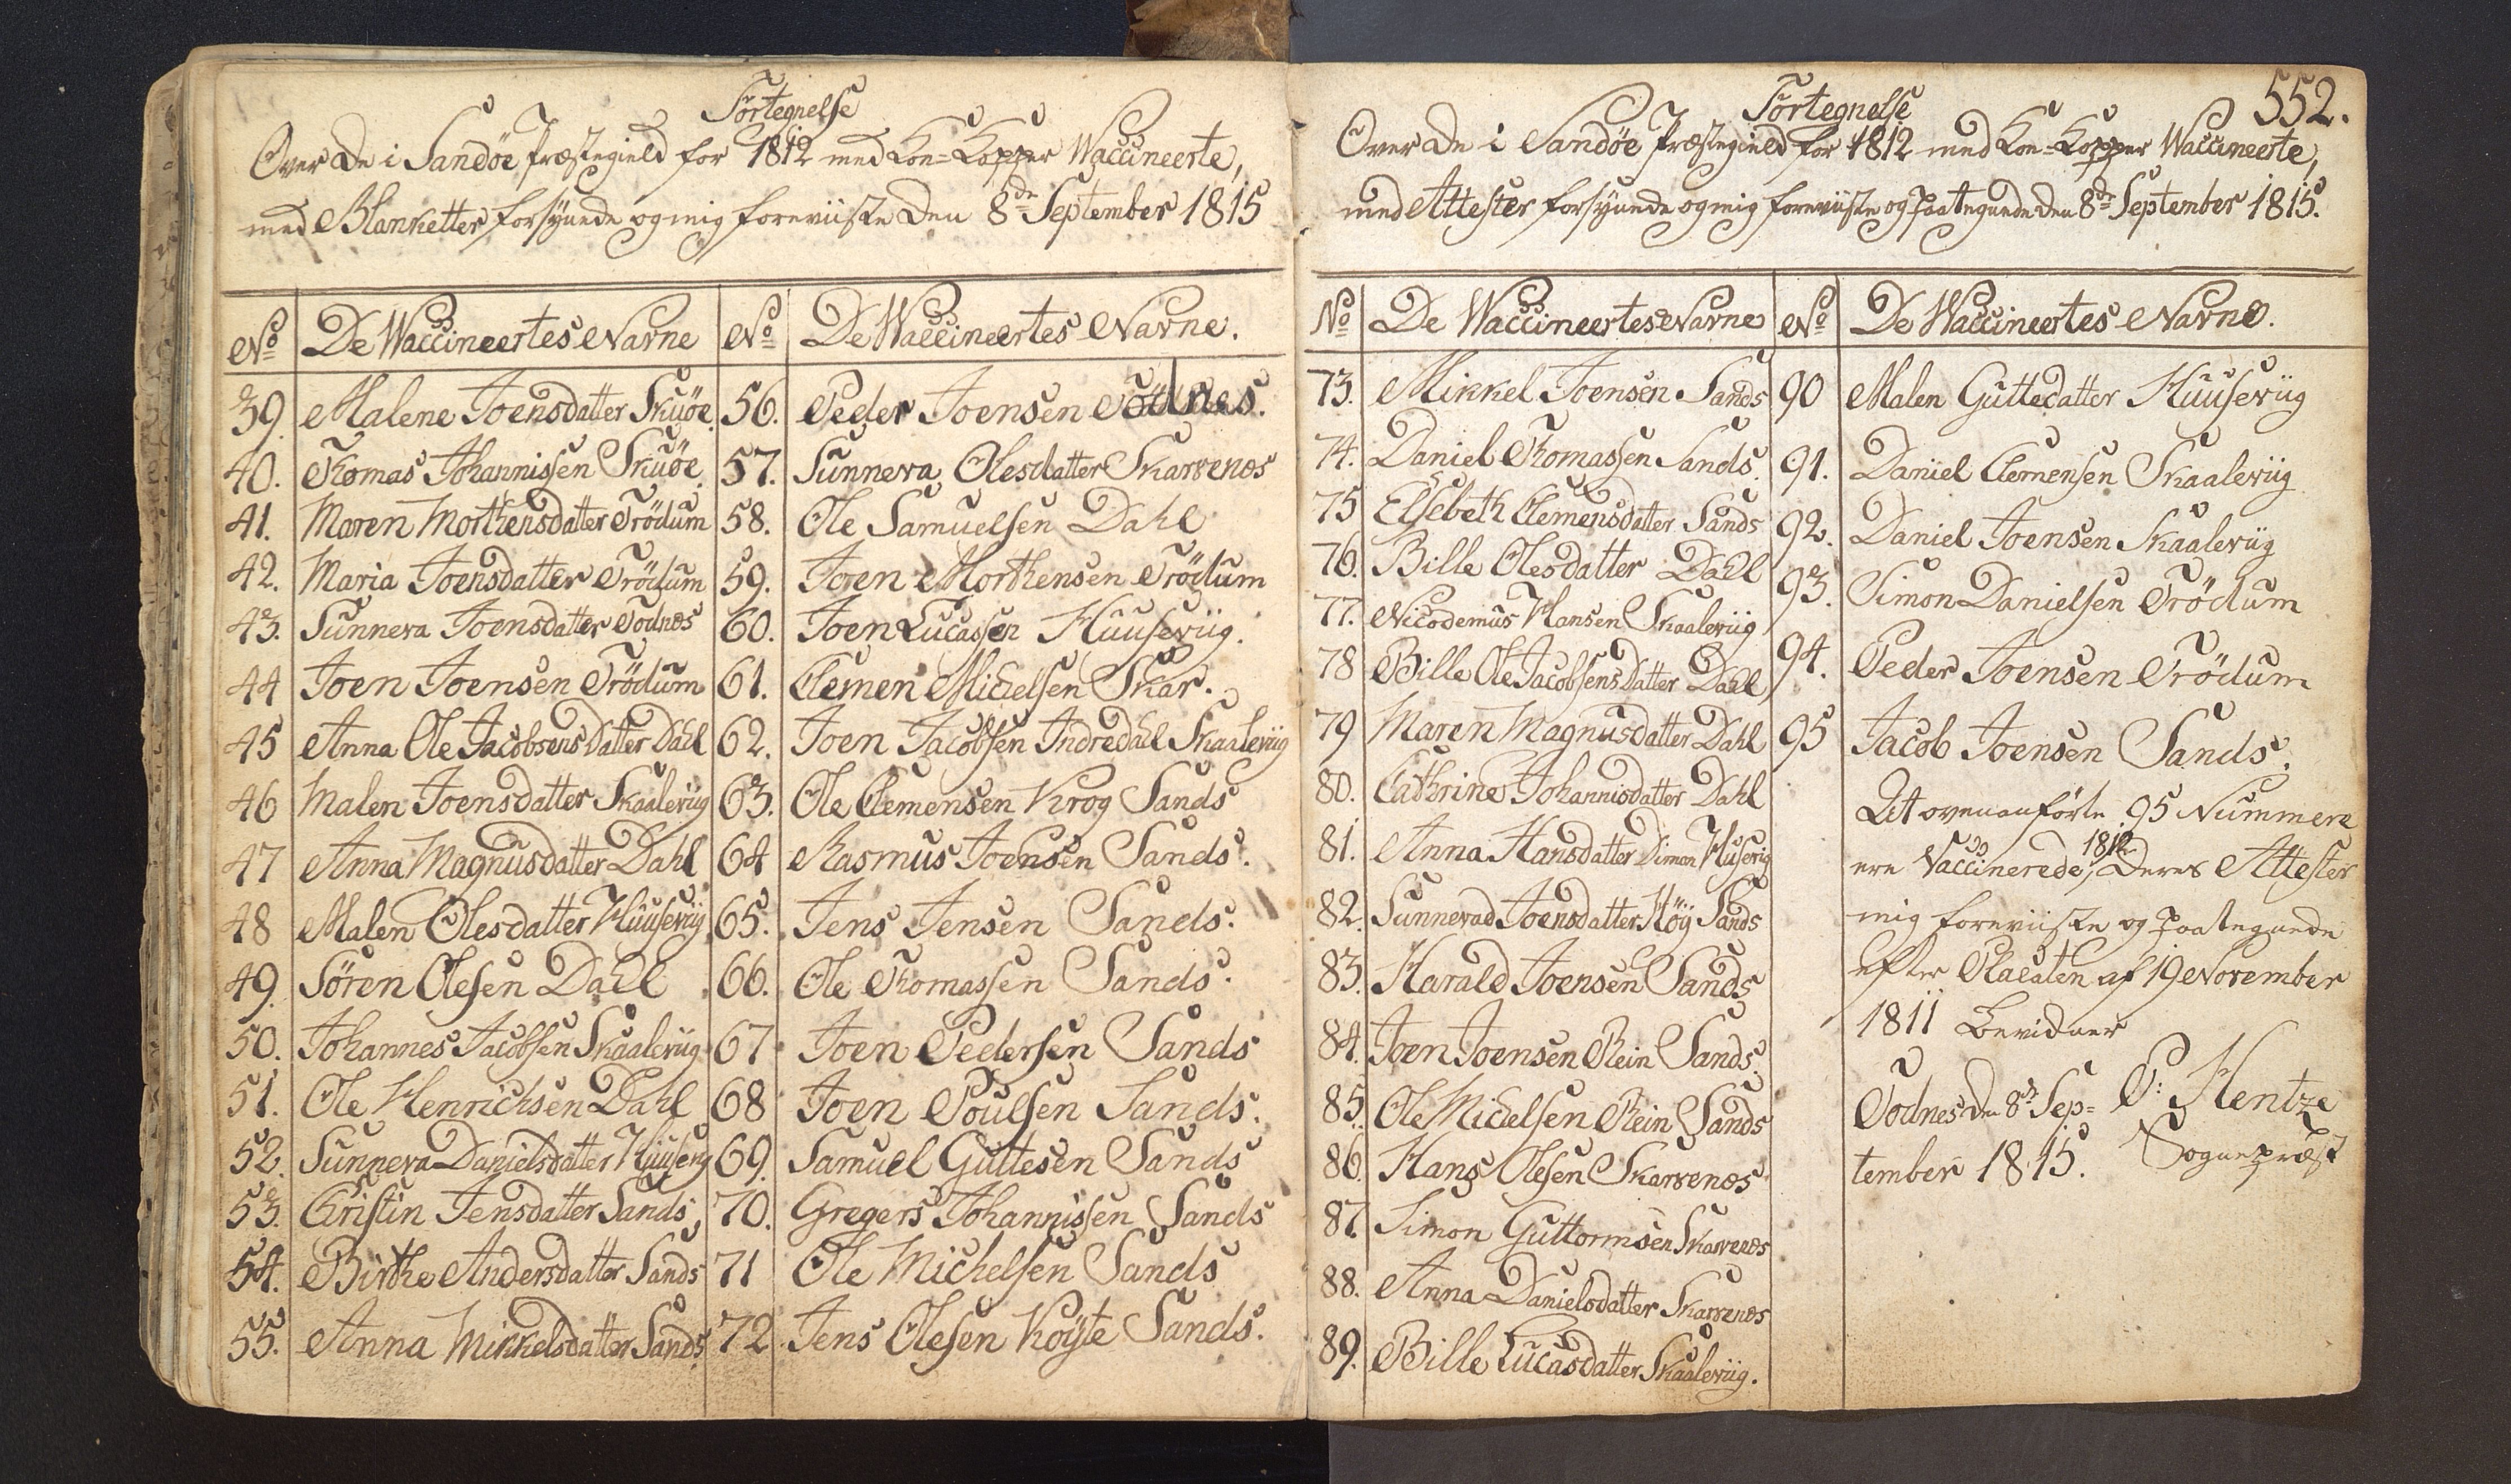 Fortegnelse
Over de i Sandöe Præstegield for 1812 med Koe-Kopper Waccineerte,
med Blanketter forsÿnede og mig foreviiste den 8de September 1815
No De Waccineertes Navne No De Waccineertes Navne.
39. Malene Joensdatter Skuöe
40. Thomas Johannissen Skuöe
41. Maren Morthensdatter Trödum
42. Maria Joensdatter Trödum
43. Sunneva Joensdatter Todnæs
44 Joen Joensen Trödum
45 Anna Ole Jacobsens Datter Dahl
46 Malen Joensdatter Skaaleviig
47 Anna Magnusdatter Dahl
48 Malen Olesdatter Huuseviig
49. Sören Olesen Dahl
50. Johannes Jacobsen Skaaleviig
51. Ole Henrichsen Dahl
52. Sunneva Danielsdatter Huusevig
53. Christin Jensdatter Sands
54. Birthe Andersdatter Sands
55. Anna Mikkelsdatter Sands
56. Peder Joensen Todnes.
57. Sunneva Olesdatter Skarvenæs
58. Ole Samuelsen Dahl
59. Joen Morthensen Trödum
60. Joen Lucassen Huuseviig.
61. Clemen Michelsen Skar.
62. Joen Jacobsen Indredahl Skaaleviig
63. Ole Clemensen Krog Sands
64 Rasmus Joensen Sands.
65. Jens Jensen Sands.
66. Ole Thomassen Sands.
67 Joen Pedersen Sands
68 Joen Poulsen Sands.
69. Samuel Guttesen Sands
70. Gregers Johannissen Sands
71 Ole Michelsen Sands
72 Jens Olesen Köÿte Sands.
552.
Fortegnelse
Over de i Sandöe Præstegield for 1812 med Koe-Kopper Waccineerte,
med Attester forsÿnede og mig foreviiste og paategnede den 8de September 1815.
No De Waccineertes Navne No De Waccineertes Navne.
73. Mikkel Joensen Sands
74. Daniel Thomassen Sands.
75 Elsebeth Clemensdatter Sands
76. Bille Olesdatter Dahl
77. Nicodemus Hansen Skaaleviig
78 Bille Ole Jacobsens Datter Dahl
79 Maren Magnusdatter Dahl
80. Cathrine Johannisdatter Dahl
81. Anna Hansdatter Dimon Husevig
82. Sunnevad Joensdatter Höÿ Sands
83. Harald Joensen Sands
84. Joen Joensen Rein Sands.
85. Ole Michelsen Rein Sands
86. Hans Olesen Skarvenæs
87. Simon Guttormsen Skarvenæs
88. Anna Danielsdatter Skarvenæs
89. Bille Lucasdatter Skaaleviig.
90 Malen Guttedatter Huuseviig
91. Daniel Clemensen Skaaleviig
92. Daniel Joensen Skaaleviig
93. Simon Danielsen Trödum
94. Peder Joensen Trödum
95 Jacob Joensen Sands.
At ovenanförte 95 Nummere
ere Vaccinerede, 1812 Deres Attester
mig foreviiste og paategnede
efter Placaten af 19 November
1811 bevidner
Todnes den 8de Sep= P: Hentze
tember 1815. Sognepræst